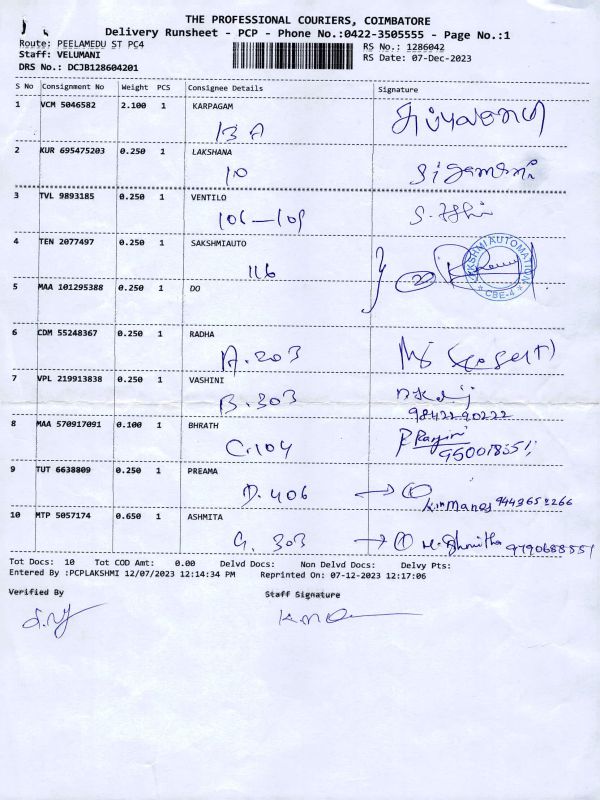 THE PROFESSIONAL COURIERS, COIMBATORE
Delivery Runsheet - PCP - Phone No.:0422-3505555 - Page No.:1
Route: PEELAMEDU ST PC4
RS No.: 1286042
Staff: VELUMANI
RS Date: 07-Dec-2023
DRS No.: DCJB128604201
S No Consignment No Weight PCS Consignee Details Signature
1 VCM 5046582 2.100 1 KARPAGAM
13 A
2 KUR 695475203 0.250 1 LAKSHANA
10
3 TVL 9893185 0.250 1 VENTILO
106-109
4 TEN 2077497 0.250 1 SAKSHMIAUTO
116
LAKSHMI AUTOMATION
* CBE-4 *
5 MAA 101295388 0.250 1 DO
6 CDM 55248367 0.250 1 RADHA
A.203
7 VPL 219913838 0.250 1 VASHINI
B.303
9842290222
8 MAA 570917091 0.100 1 BHRATH
C.104
9 TUT 6638809 0.250 1 PREAMA
D.406 → ①
10 MTP 5057174 0.650 1 ASHMITA
G. 303 → ①
Tot Docs: 10 Tot COD Amt: 0.00 Delvd Docs: Non Delvd Docs: Delvy Pts:
Entered By :PCPLAKSHMI 12/07/2023 12:14:34 PM Reprinted On: 07-12-2023 12:17:06
Verified By Staff Signature